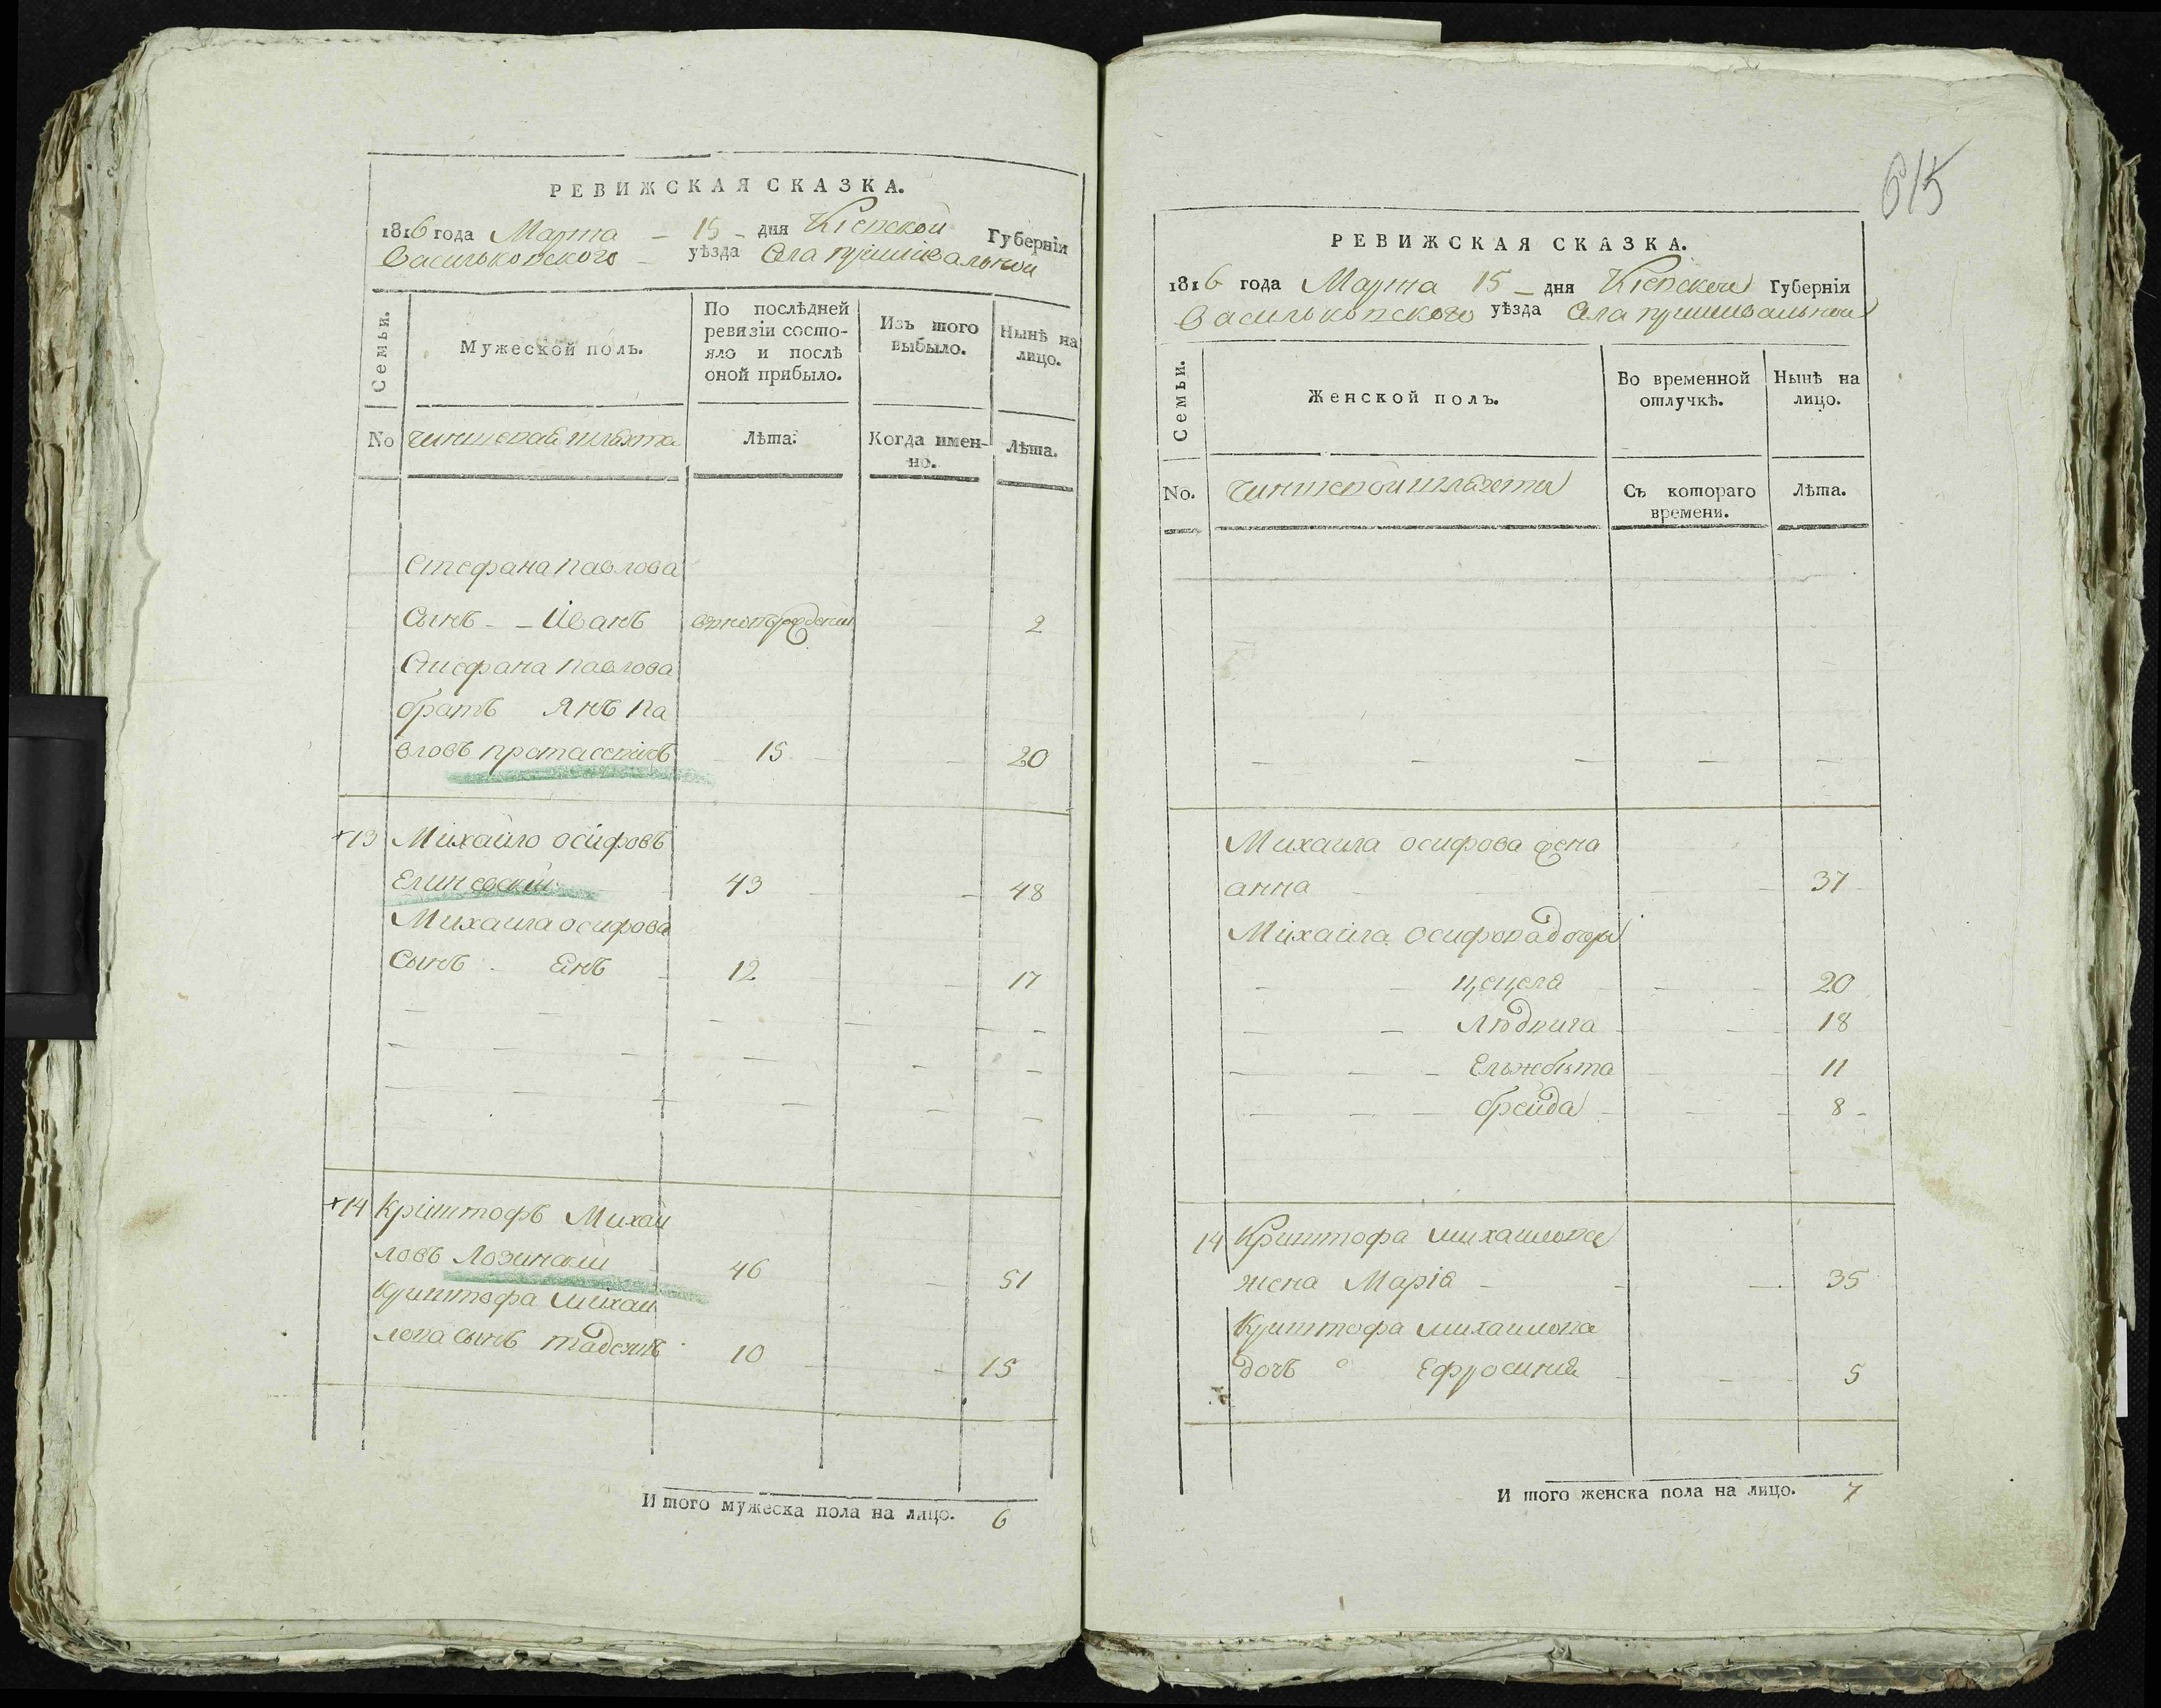 РЕВИЖСКАЯ СКАЗКА.
1816 года Марта - 15 - дня Кіевской Губерніи
Васильковского уѣзда Села пришивальной
Семьи.
Мужеской полъ.
По послѣдней ревизіи состояло и послѣ оной прибыло.
Изъ того выбыло.
Нынѣ на лицо.
No чиншевой шляхта
Лѣта.
Когда именно.
Лѣта.
Стефана павлова
Сынъ - - Иванъ 2
Стефана павлова
братъ Янъ па
вловъ 15 20
13 Михайло осифовъ
43 48
Михайла осифова
Сынъ - Енъ 12 17
14 Криштофъ Михай
ловъ Лозинскій 46 51
Криштофа михай
лова сынъ тадеушъ 10 15
Итого мужеска пола на лицо. 6
615
РЕВИЖСКАЯ СКАЗКА.
1816 года Марта 15 - дня Кіевской Губерніи
Васильковского уѣзда Села пришивальной
Семьи.
Женской полъ.
Во временной отлучкѣ.
Нынѣ на лицо.
No. чиншевой шляхты
Съ котораго времени.
Лѣта.
Михайла осифова жена
анна 37
Михайла осифова дочери
цецеля 20
Людвига 18
Ельжбѣта 11
брейда 8
14 Криштофа михайлова
жена Марія 35
Криштофа михайлова
дочь Ефросинія 5
Итого женска пола на лицо. 7